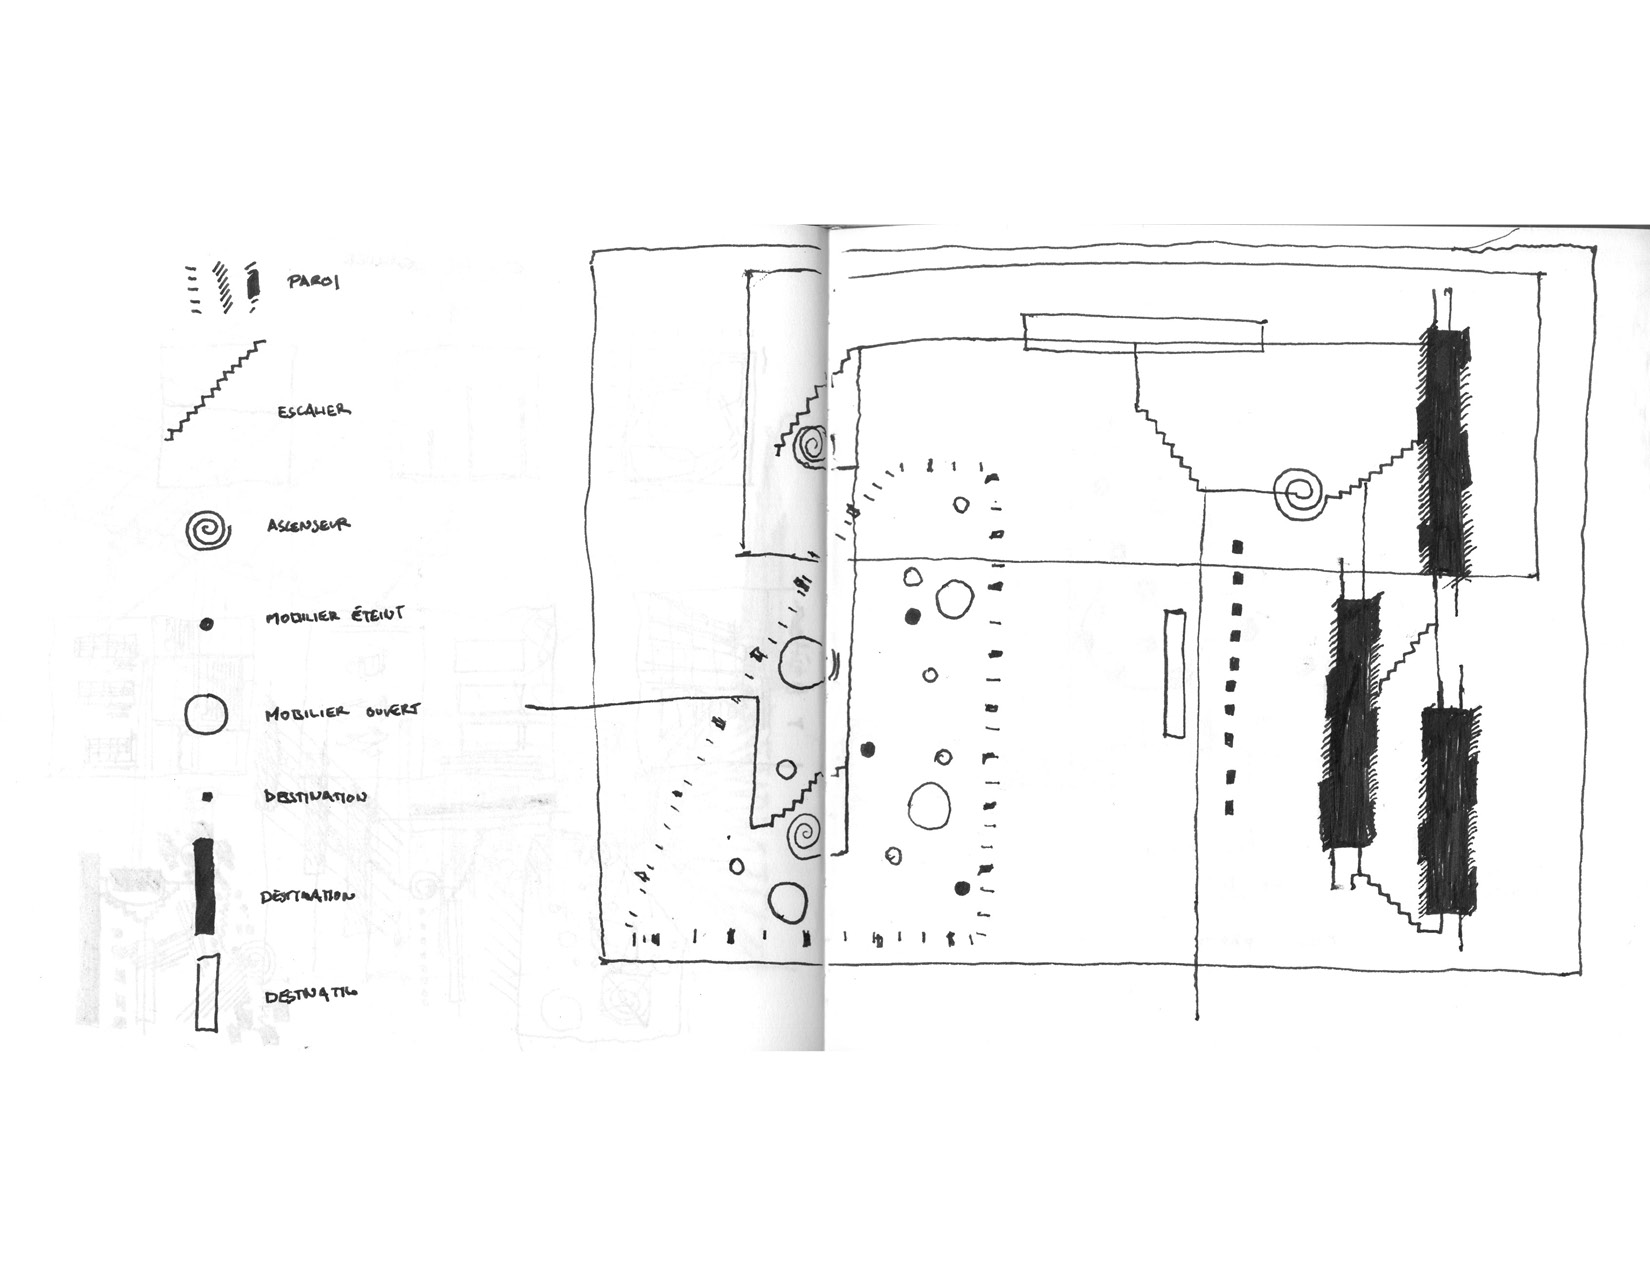 PAROI
ESCALIER
ASCENSEUR
MOBILIER ÉTEINT
MOBILIER OUVERT
DESTINATION
DESTINATION
DESTINATIO